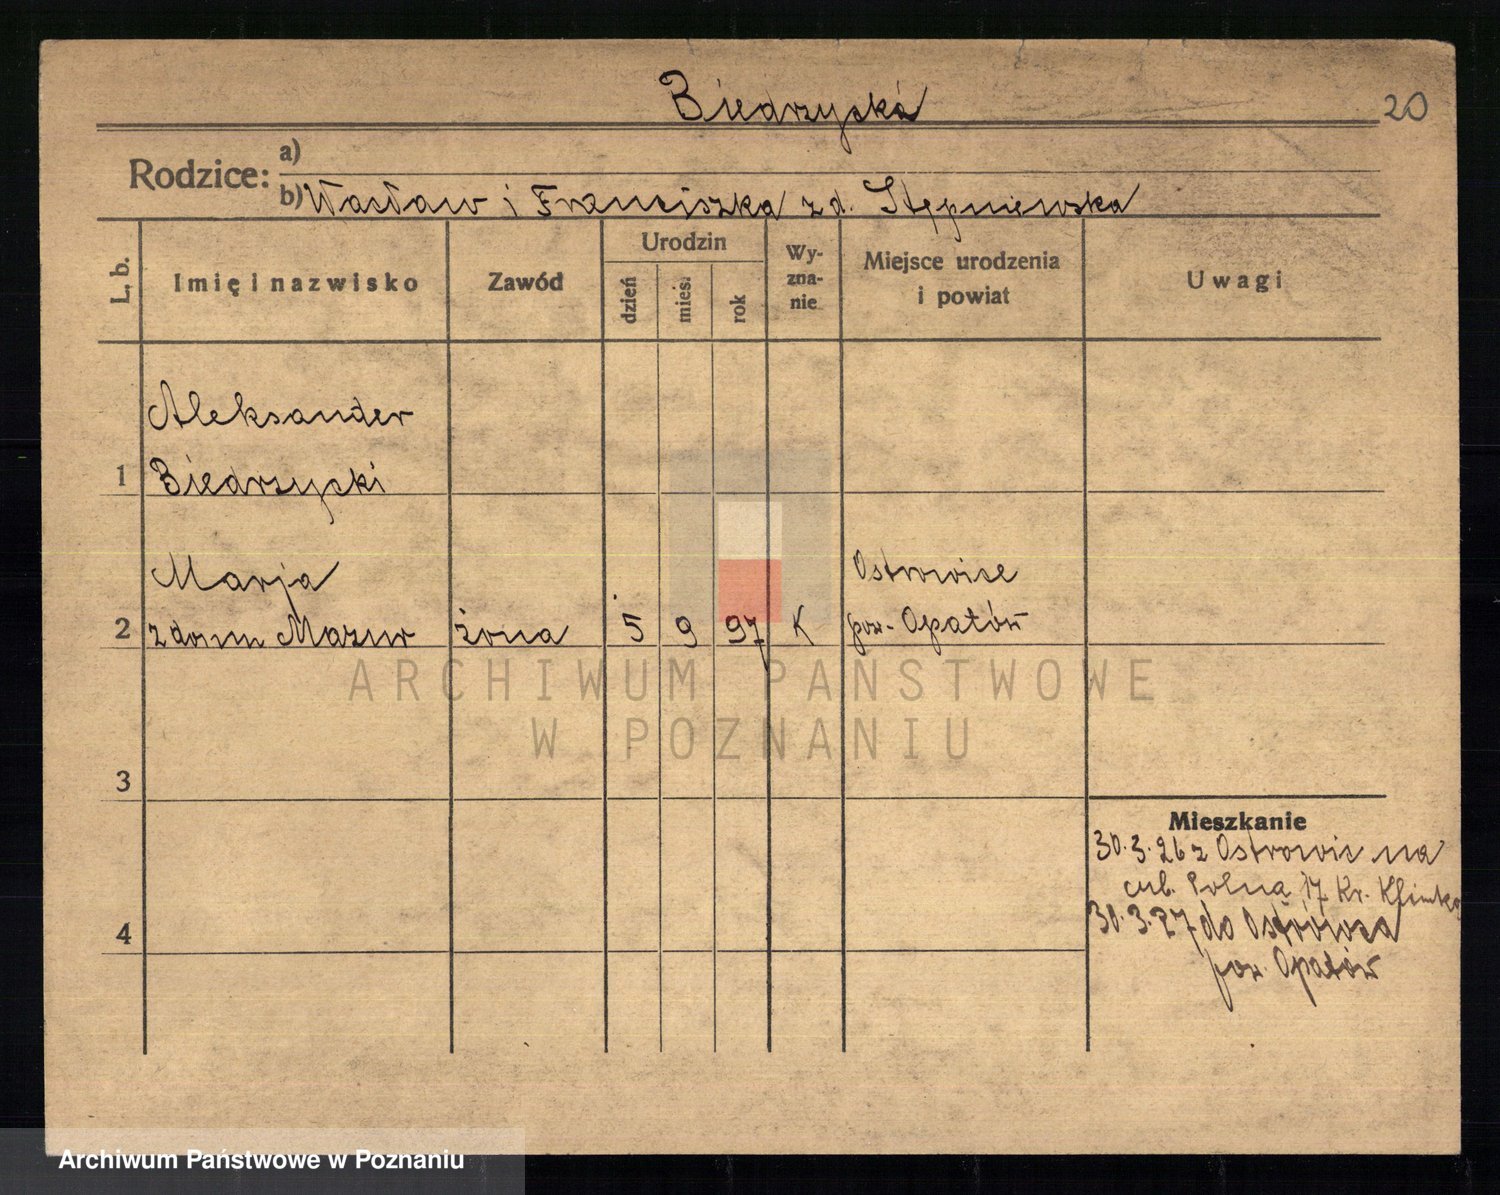 Biedrzycka
20
Rodzice: a)
b) Wacław i Franciszka z d. Stępniewska
L. b.
Imię i nazwisko
Zawód
Urodzin
dzień
mies.
rok
Wy-
zna-
nie
Miejsce urodzenia
i powiat
Uwagi
Aleksander
1 Biedrzycki
Marja Ostrowice
2 z domu Mazur żona 5 9 97 K pow. Opatów
ARCHIWUM PAŃSTWOWE
W POZNANIU
3
Mieszkanie
30.3.26 z Ostrowic na
ul. Polną 17 Kr.
4
30.3.27 do Ostrowca
pow. Opatów
Archiwum Państwowe w Poznaniu